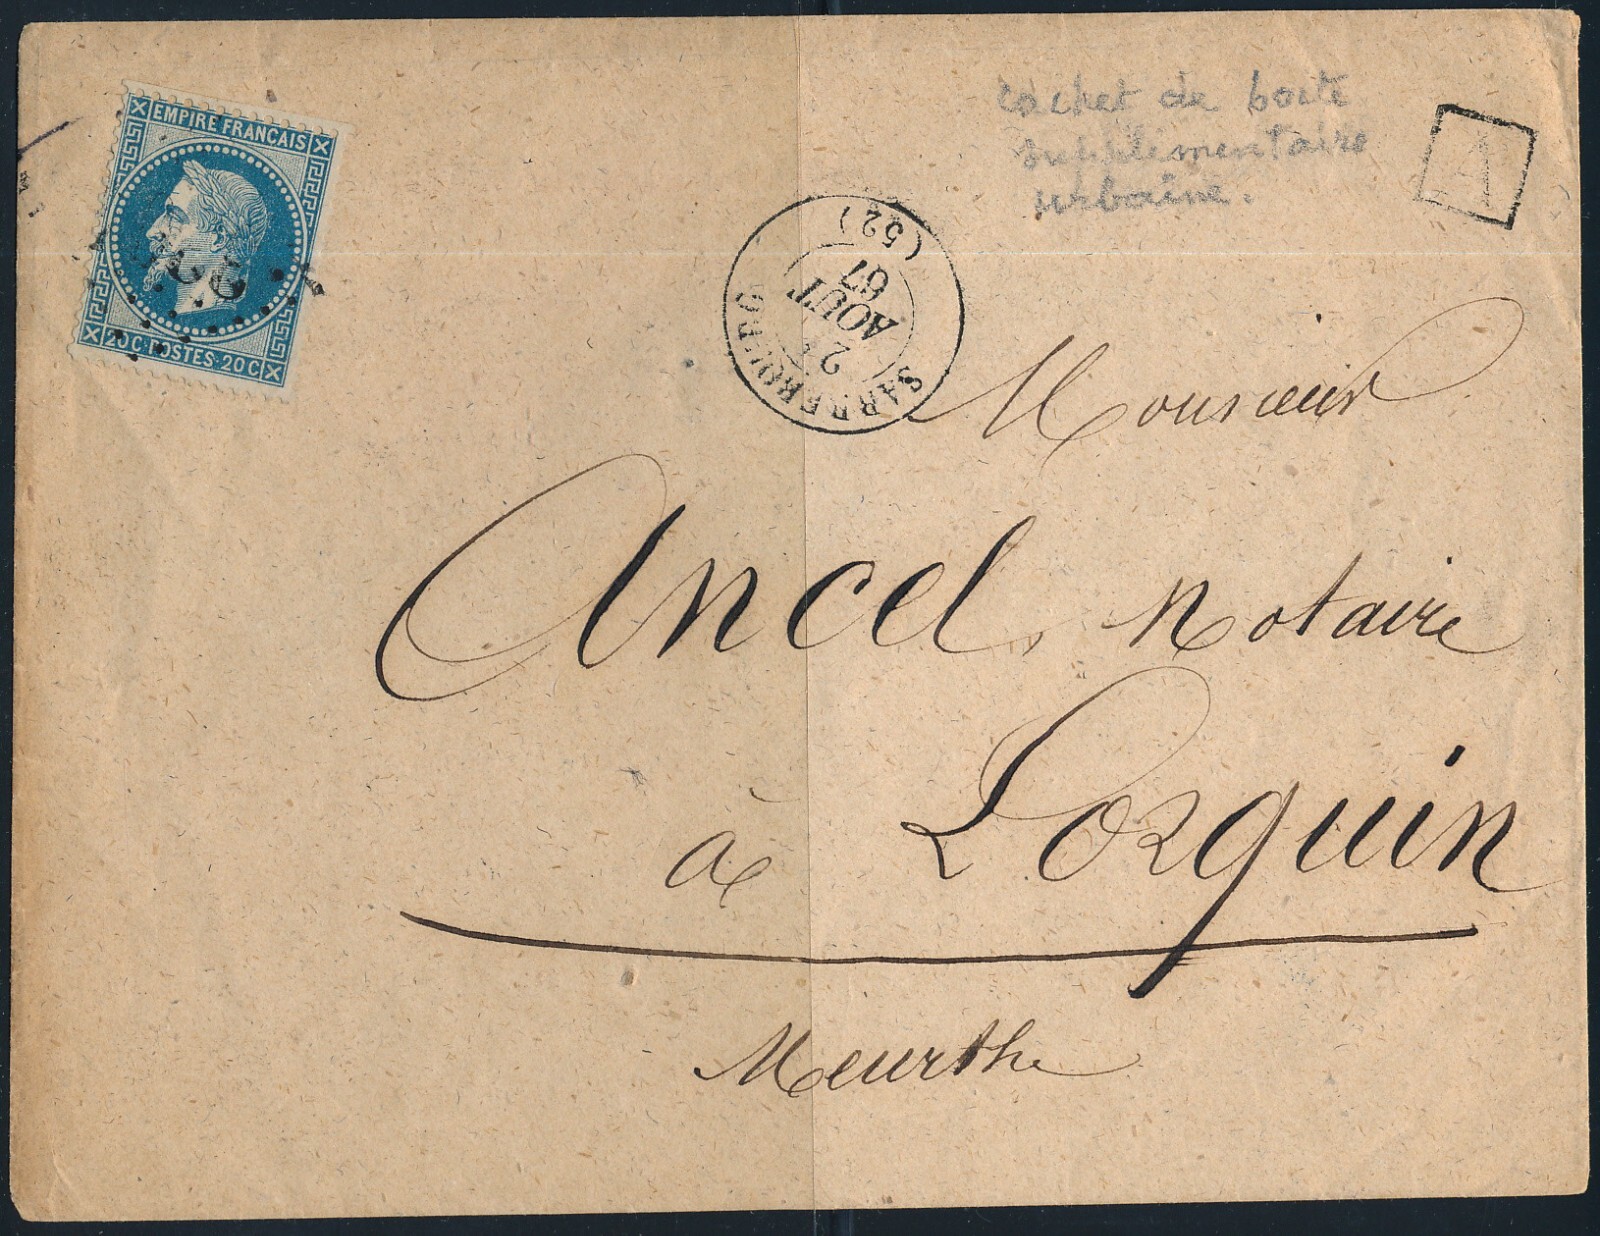 EMPIRE FRANCAIS
20C POSTES 20C
cachet de boite
supplementaire
urbaine.
1
SARREBOURG
AOUT
67
(52)
Monsieur
Ancel, Notaire
à Lorquin
Meurthe